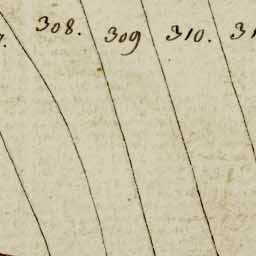 308. 309 310.